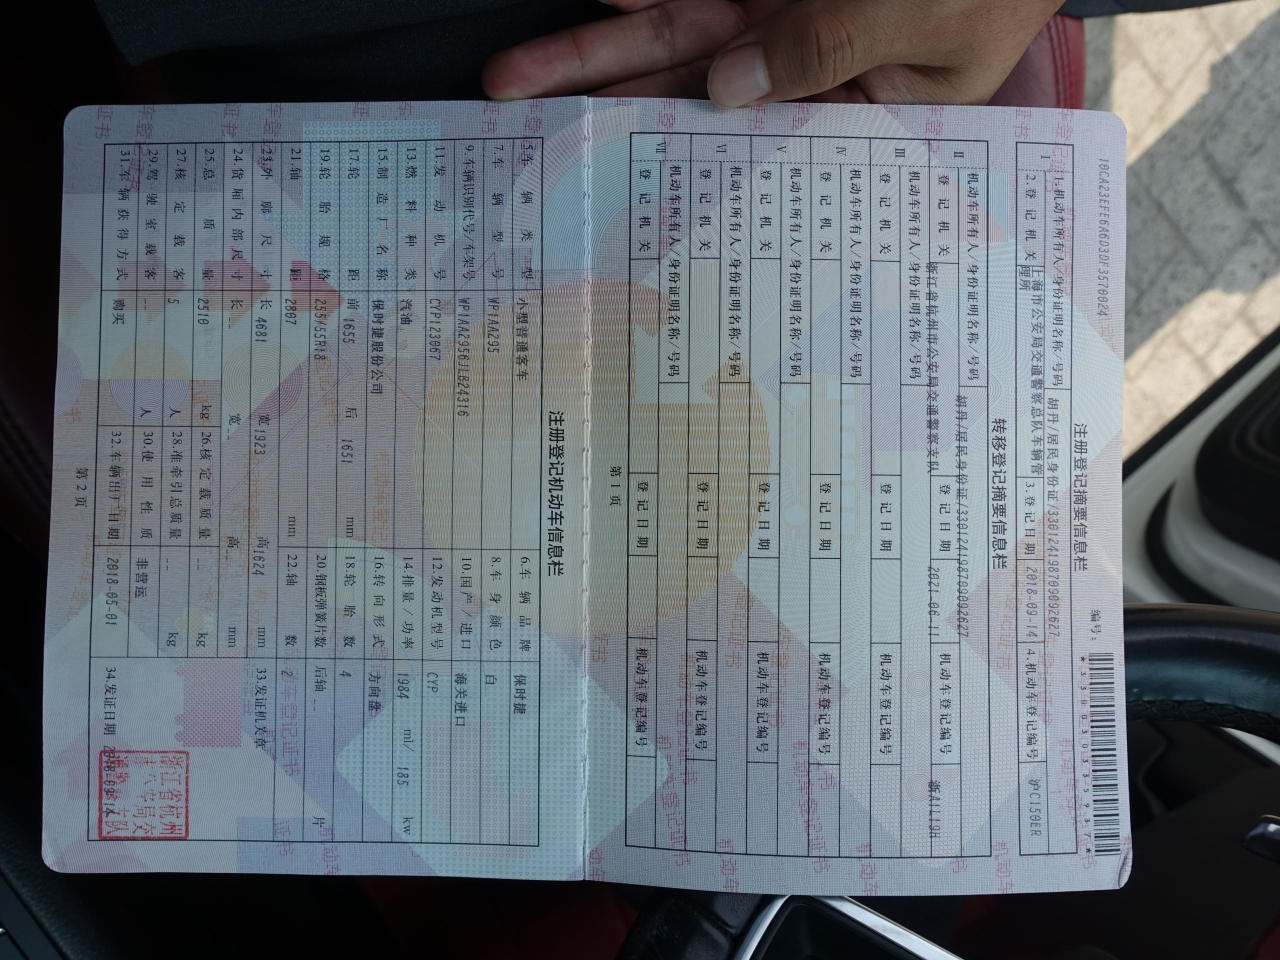 10CA23EFE6A6D3DF3570024
编号：
*330030335937*
注册登记摘要信息栏
I
1.机动车所有人/身份证明名称/号码 胡丹/居民身份证/330124198709092627
2.登记机关 上海市公安局交通警察总队车辆管理所 3.登记日期 2018-09-14 4.机动车登记编号 沪C150ER
转移登记摘要信息栏
II 机动车所有人/身份证明名称/号码 胡丹/居民身份证/330124198709092627
登记机关 浙江省杭州市公安局交通警察支队 登记日期 2021-06-11 机动车登记编号
III 机动车所有人/身份证明名称/号码
登记机关 登记日期 机动车登记编号
IV 机动车所有人/身份证明名称/号码
登记机关 登记日期 机动车登记编号
V 机动车所有人/身份证明名称/号码
登记机关 登记日期 机动车登记编号
VI 机动车所有人/身份证明名称/号码
登记机关 登记日期 机动车登记编号
VII 机动车所有人/身份证明名称/号码
登记机关 登记日期 机动车登记编号
第1页
注册登记机动车信息栏
5.车辆类型 小型普通客车 6.车辆品牌 保时捷
7.车辆型号 WP1AA295 8.车身颜色 白
9.车辆识别代号/车架号 WP1AA2956JLB24316 10.国产/进口 海关进口
11.发动机号 CYP123067 12.发动机型号 CYP
13.燃料种类 汽油 14.排量/功率 1984 ml/ 185 kw
15.制造厂名称 保时捷股份公司 16.转向形式 方向盘
17.轮距 前 1655 后 1651 mm 18.轮胎数 4
19.轮胎规格 255/55R18 20.钢板弹簧片数 后轴 -- 片
21.轴距 2807 mm 22.轴数 2
23.外廓尺寸 长 4681 宽 1923 高 1624 mm 33.发证机关章
24.货厢内部尺寸 长 -- 宽 -- 高 -- mm
25.总质量 2510 kg 26.核定载质量 -- kg
27.核定载客 5 人 28.准牵引总质量 -- kg
29.驾驶室载客 -- 人 30.使用性质 非营运
31.车辆获得方式 购买 32.车辆出厂日期 2018-05-01 34.发证日期
第2页